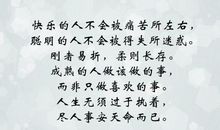 快乐的人不会被痛苦所左右，
聪明的人不会被得失所迷惑。
刚者易折，柔则长存。
成熟的人做该做的事，
而非只做喜欢的事。
人生无须过于执着，
尽人事安天命而已。